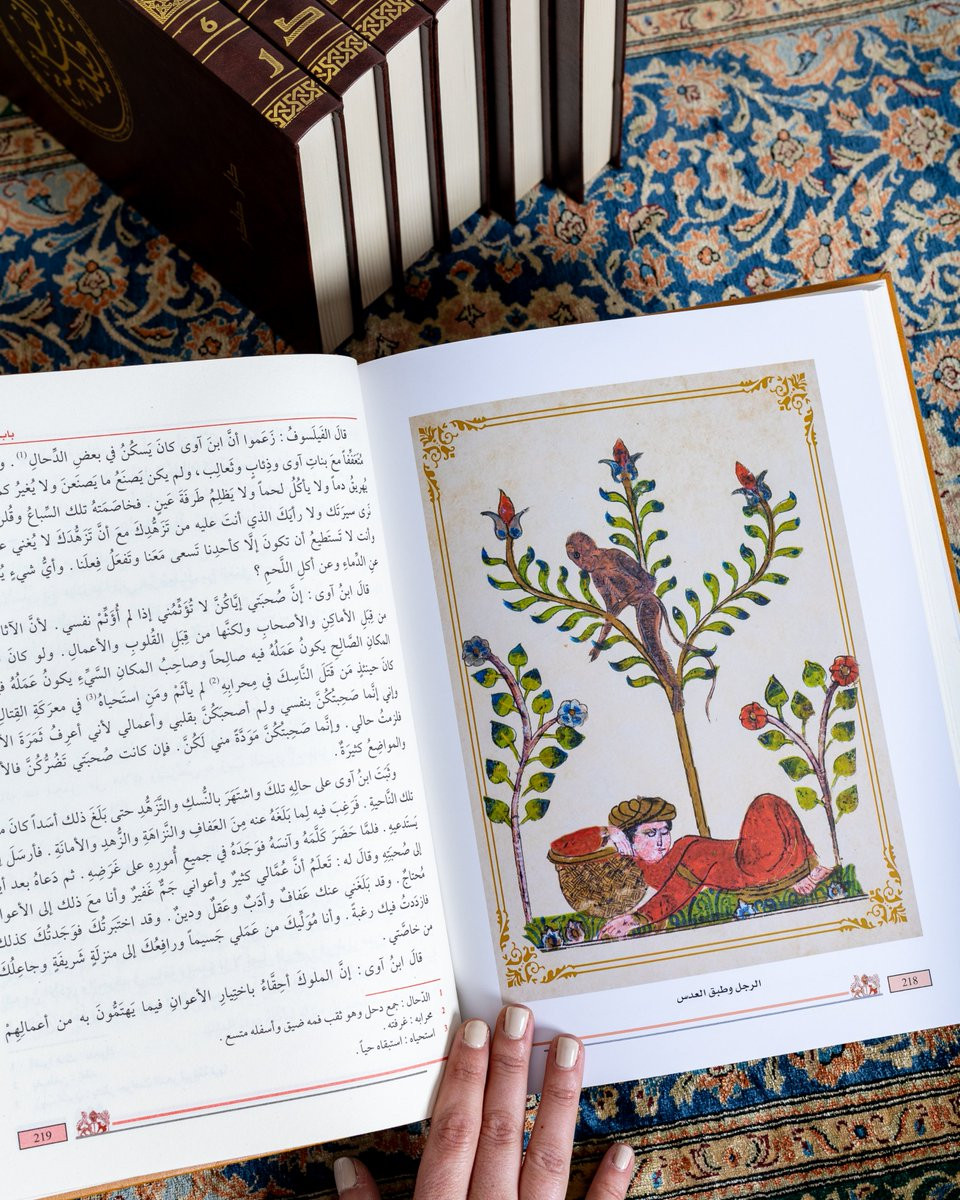 6
الرجل وطبق العدس
218
باب
قالَ الفَيلَسوفُ : زَعَموا أنَّ ابنَ آوى كانَ يَسكُنُ في بعضِ الدِّحالِ (1) .
مُتَعَفِّفاً معَ بناتِ آوى وذِئابٍ وثَعالِب ، ولم يكن يَصنَعُ ما يَصنَعنَ ولا يُغيرُ
يُهريقُ دماً ولا يأكُلُ لحماً ولا يَظلِمُ طَرفَةَ عَينٍ . فخاصَمَتهُ تلك السِّباعُ
نرى سيرَتَك ولا رأيَكَ الذي أنتَ عليه من تَزَهُّدِكَ مع أنَّ تَزَهُّدَكَ لا يُغني
وأنت لا تَستَطيعُ أن تكونَ إلّا كأحدِنا تسعى مَعَنا وتَفعَلُ فِعلَنا . وأيُّ شيءٍ
عن الدِّماءِ وعن أكلِ اللَّحمِ ؟
قالَ ابنُ آوى : إنَّ صُحبَتي إيّاكُنَّ لا تُؤَثِّمُني إذا لم أُؤَثِّمْ نفسي . لأنَّ
من قِبَلِ الأماكِنِ والأصحابِ ولكنَّها من قِبَلِ القُلوبِ والأعمالِ . ولو كانَ
المكانِ الصَّالِحِ يكونُ عَمَلُهُ فيه صالِحاً وصاحِبُ المكانِ السَّيِّءِ يكونُ عَمَلُهُ
كانَ حينئذٍ مَن قَتَلَ النَّاسِكَ في مِحرابِهِ (2) لم يأثَمْ ومَنِ استَحياهُ (3) في معرَكَةِ القِتالِ
وإني إنَّما صَحِبتُكُنَّ بنفسي ولم أصحَبكُنَّ بقلبي وأعمالي لأني أعرِفُ ثَمَرَةَ
فلزِمتُ حالي . وإنَّما صَحِبتُكُنَّ مَوَدَّةً مني لَكُنَّ . فإن كانت صُحبَتي تَضُرُّكُنَّ
والمواضِعُ كثيرَةٌ .
وثَبَتَ ابنُ آوى على حالِهِ تِلكَ واشتَهَرَ بالنُّسكِ والتَّزَهُّدِ حتى بَلَغَ ذلك أسَداً كانَ
تلك النَّاحيةِ . فرَغِبَ فيه لِما بَلَغَهُ عنه مِنَ العَفافِ والنَّزاهَةِ والزُّهدِ والأمانَةِ . فأرسَلَ
يَستَدعيهِ . فلمَّا حَضَرَ كَلَّمَهُ وآنسَهُ فوَجَدَهُ في جميعِ أُمورِهِ على غَرَضِهِ . ثم دَعاهُ بعد
إلى صُحبَتِهِ وقالَ له : تَعلَمُ أنَّ عُمَّالي كثيرٌ وأعواني جَمٌّ غَفيرٌ وأنا معَ ذلك إلى
مُحتاجٌ . وقد بَلَغَني عنك عَفافٌ وأدَبٌ وعَقلٌ ودينٌ . وقد اختَبَرتُكَ فوَجَدتُكَ كذلك
فازدَدتُ فيك رغبةً . وأنا مُوَلّيكَ من عَمَلي جَسيماً ورافِعُكَ إلى منزلَةٍ شَريفَةٍ وجاعِلُكَ
من خاصَّتي .
قالَ ابنُ آوى : إنَّ الملوكَ أحِقَّاءُ باختِيارِ الأعوانِ فيما يَهتَمُّونَ به من أعمالِهِمْ
1 الدّحال : جمع دحل وهو ثقب فمه ضيق وأسفله متسع .
2 محرابه : غرفته .
3 استحياه : استبقاه حياً .
219